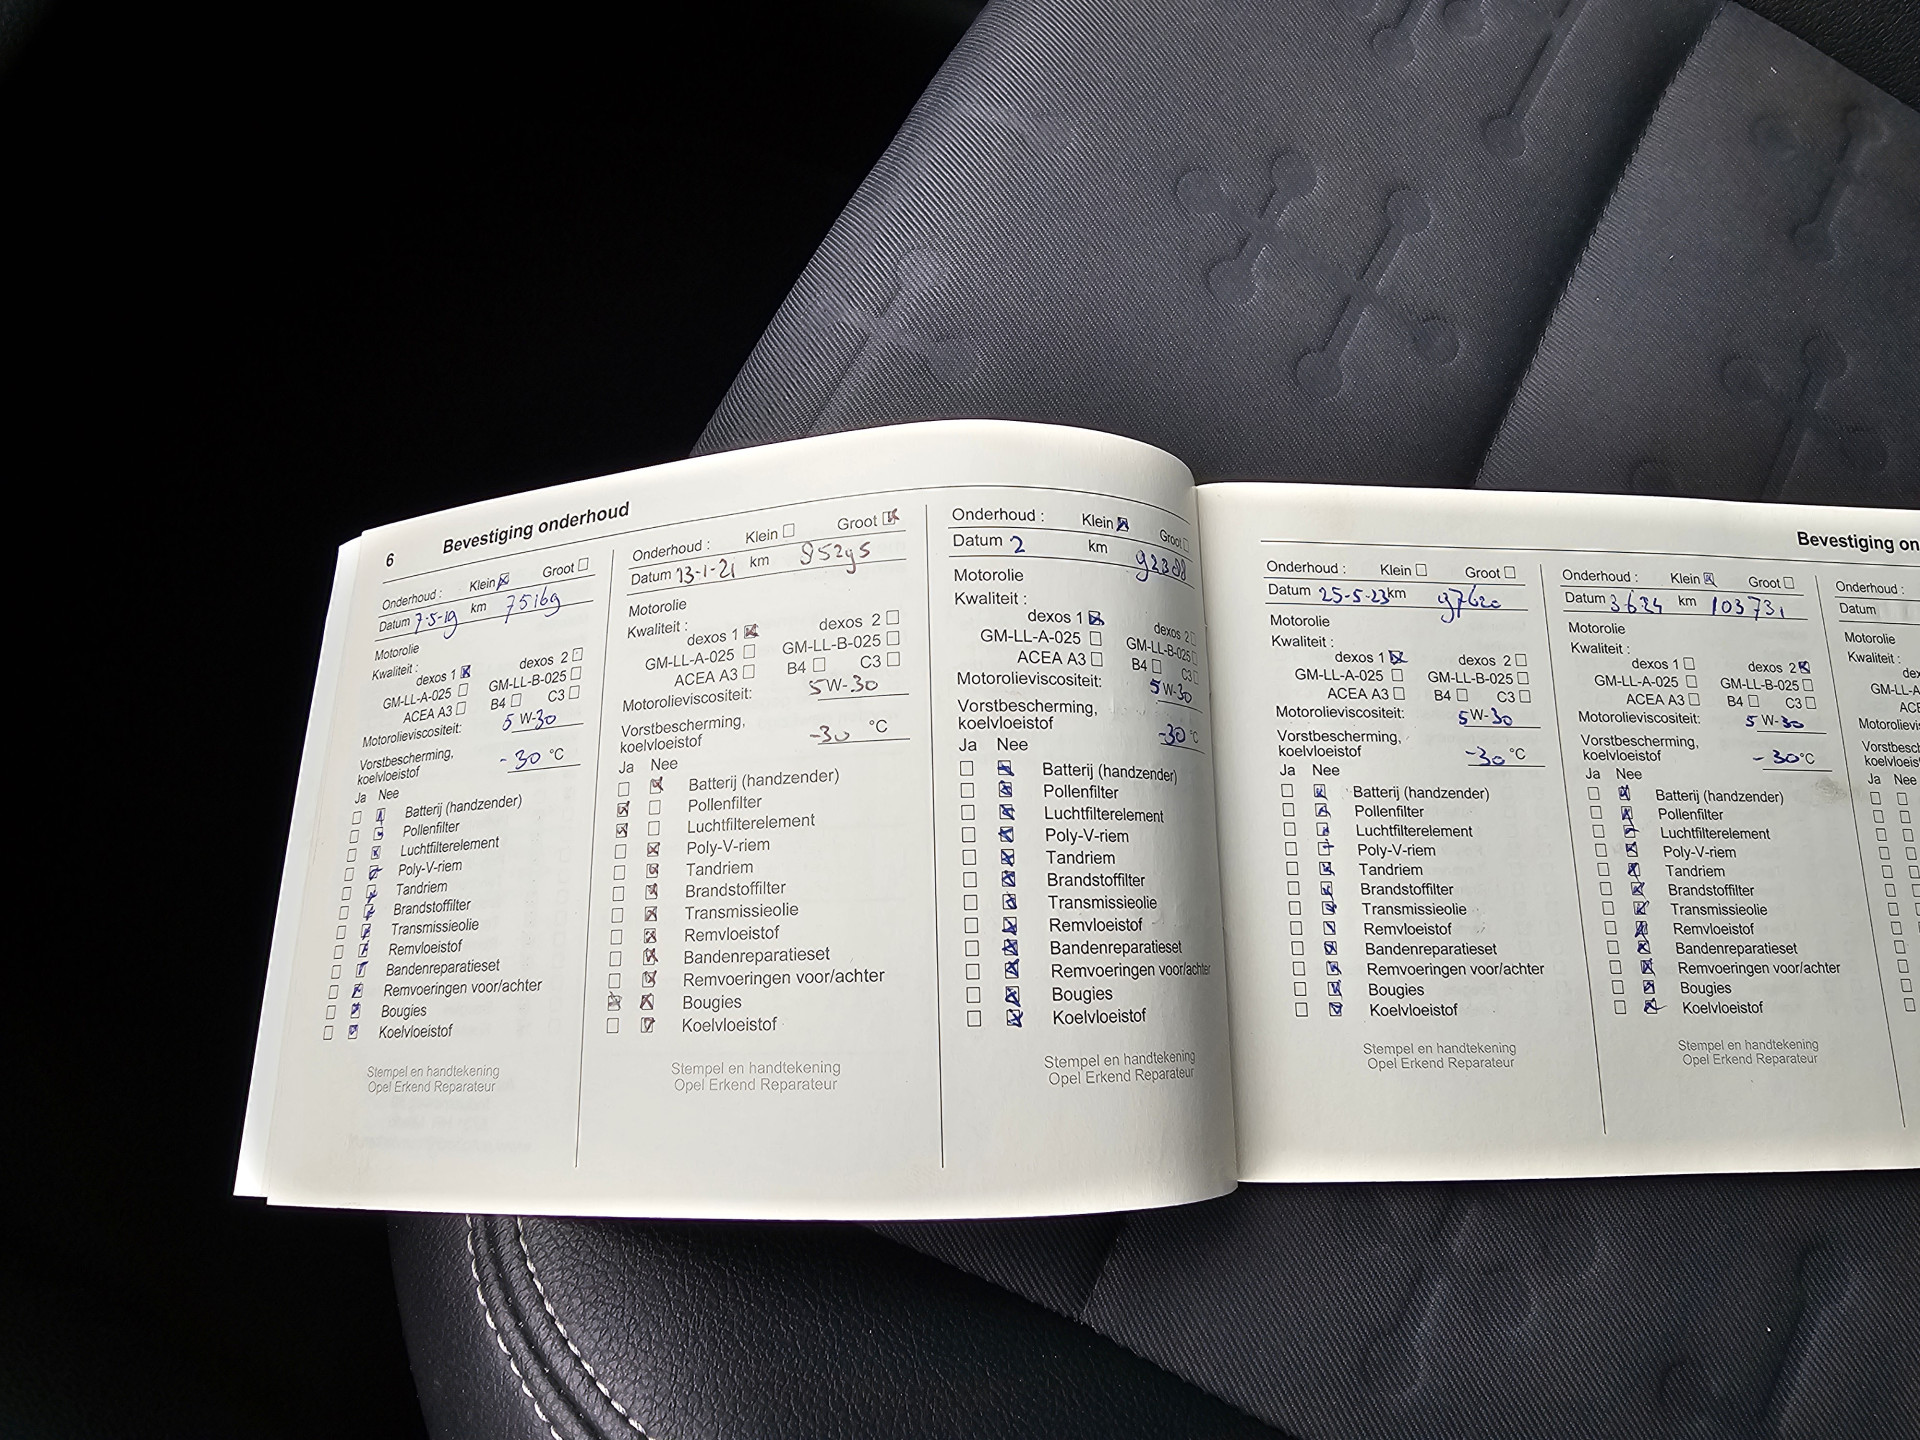 6 Bevestiging onderhoud
Onderhoud : Klein Groot
Datum 7-5-19 km 75169
Motorolie
Kwaliteit :
dexos 1 dexos 2
GM-LL-A-025 GM-LL-B-025
ACEA A3 B4 C3
Motorolieviscositeit: 5W-30
Vorstbescherming,
koelvloeistof -30 °C
Ja Nee
Batterij (handzender)
Pollenfilter
Luchtfilterelement
Poly-V-riem
Tandriem
Brandstoffilter
Transmissieolie
Remvloeistof
Bandenreparatieset
Remvoeringen voor/achter
Bougies
Koelvloeistof
Stempel en handtekening
Opel Erkend Reparateur
Onderhoud : Klein Groot
Datum 13-1-21 km
Motorolie
Kwaliteit :
dexos 1 dexos 2
GM-LL-A-025 GM-LL-B-025
ACEA A3 B4 C3
Motorolieviscositeit: 5W-30
Vorstbescherming,
koelvloeistof -30 °C
Ja Nee
Batterij (handzender)
Pollenfilter
Luchtfilterelement
Poly-V-riem
Tandriem
Brandstoffilter
Transmissieolie
Remvloeistof
Bandenreparatieset
Remvoeringen voor/achter
Bougies
Koelvloeistof
Stempel en handtekening
Opel Erkend Reparateur
Onderhoud : Klein Groot
Datum 2 km
Motorolie
Kwaliteit :
dexos 1 dexos 2
GM-LL-A-025 GM-LL-B-025
ACEA A3 B4 C3
Motorolieviscositeit: 5W-30
Vorstbescherming,
koelvloeistof -30 °C
Ja Nee
Batterij (handzender)
Pollenfilter
Luchtfilterelement
Poly-V-riem
Tandriem
Brandstoffilter
Transmissieolie
Remvloeistof
Bandenreparatieset
Remvoeringen voor/achter
Bougies
Koelvloeistof
Stempel en handtekening
Opel Erkend Reparateur
Bevestiging on
Onderhoud : Klein Groot
Datum 25-5-23 km 97620
Motorolie
Kwaliteit :
dexos 1 dexos 2
GM-LL-A-025 GM-LL-B-025
ACEA A3 B4 C3
Motorolieviscositeit: 5W-30
Vorstbescherming,
koelvloeistof -30 °C
Ja Nee
Batterij (handzender)
Pollenfilter
Luchtfilterelement
Poly-V-riem
Tandriem
Brandstoffilter
Transmissieolie
Remvloeistof
Bandenreparatieset
Remvoeringen voor/achter
Bougies
Koelvloeistof
Stempel en handtekening
Opel Erkend Reparateur
Onderhoud : Klein Groot
Datum 3624 km 103731
Motorolie
Kwaliteit :
dexos 1 dexos 2
GM-LL-A-025 GM-LL-B-025
ACEA A3 B4 C3
Motorolieviscositeit: 5W-30
Vorstbescherming,
koelvloeistof -30°C
Ja Nee
Batterij (handzender)
Pollenfilter
Luchtfilterelement
Poly-V-riem
Tandriem
Brandstoffilter
Transmissieolie
Remvloeistof
Bandenreparatieset
Remvoeringen voor/achter
Bougies
Koelvloeistof
Stempel en handtekening
Opel Erkend Reparateur
Onderhoud :
Datum
Motorolie
Kwaliteit :
dex
GM-LL-A
ACE
Motorolievis
Vorstbesch
koelvloeis
Ja Nee